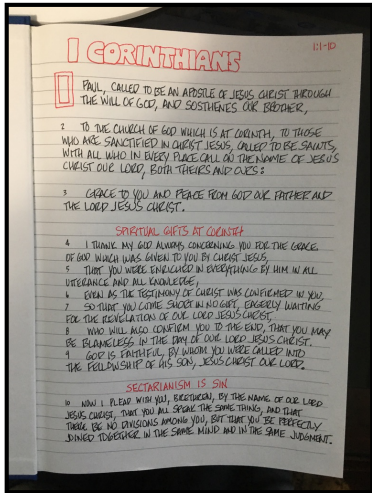 1 CORINTHIANS
1:1-10
1 PAUL, CALLED TO BE AN APOSTLE OF JESUS CHRIST THROUGH
THE WILL OF GOD, AND SOSTHENES OUR BROTHER,
2 TO THE CHURCH OF GOD WHICH IS AT CORINTH, TO THOSE
WHO ARE SANCTIFIED IN CHRIST JESUS, CALLED TO BE SAINTS,
WITH ALL WHO IN EVERY PLACE CALL ON THE NAME OF JESUS
CHRIST OUR LORD, BOTH THEIRS AND OURS:
3 GRACE TO YOU AND PEACE FROM GOD OUR FATHER AND
THE LORD JESUS CHRIST.
SPIRITUAL GIFTS AT CORINTH
4 I THANK MY GOD ALWAYS CONCERNING YOU FOR THE GRACE
OF GOD WHICH WAS GIVEN TO YOU BY CHRIST JESUS,
5 THAT YOU WERE ENRICHED IN EVERYTHING BY HIM IN ALL
UTERANCE AND ALL KNOWLEDGE,
6 EVEN AS THE TESTIMONY OF CHRIST WAS CONFIRMED IN YOU,
7 SO THAT YOU COME SHORT IN NO GIFT, EAGERLY WAITING
FOR THE REVELATION OF OUR LORD JESUS CHRIST,
8 WHO WILL ALSO CONFIRM YOU TO THE END, THAT YOU MAY
BE BLAMELESS IN THE DAY OF OUR LORD JESUS CHRIST.
9 GOD IS FAITHFUL, BY WHOM YOU WERE CALLED INTO
THE FELLOWSHIP OF HIS SON, JESUS CHRIST OUR LORD.
SECTARIANISM IS SIN
10 NOW I PLEAD WITH YOU, BRETHREN, BY THE NAME OF OUR LORD
JESUS CHRIST, THAT YOU ALL SPEAK THE SAME THING, AND THAT
THERE BE NO DIVISIONS AMONG YOU, BUT THAT YOU BE PERFECTLY
JOINED TOGETHER IN THE SAME MIND AND IN THE SAME JUDGMENT.